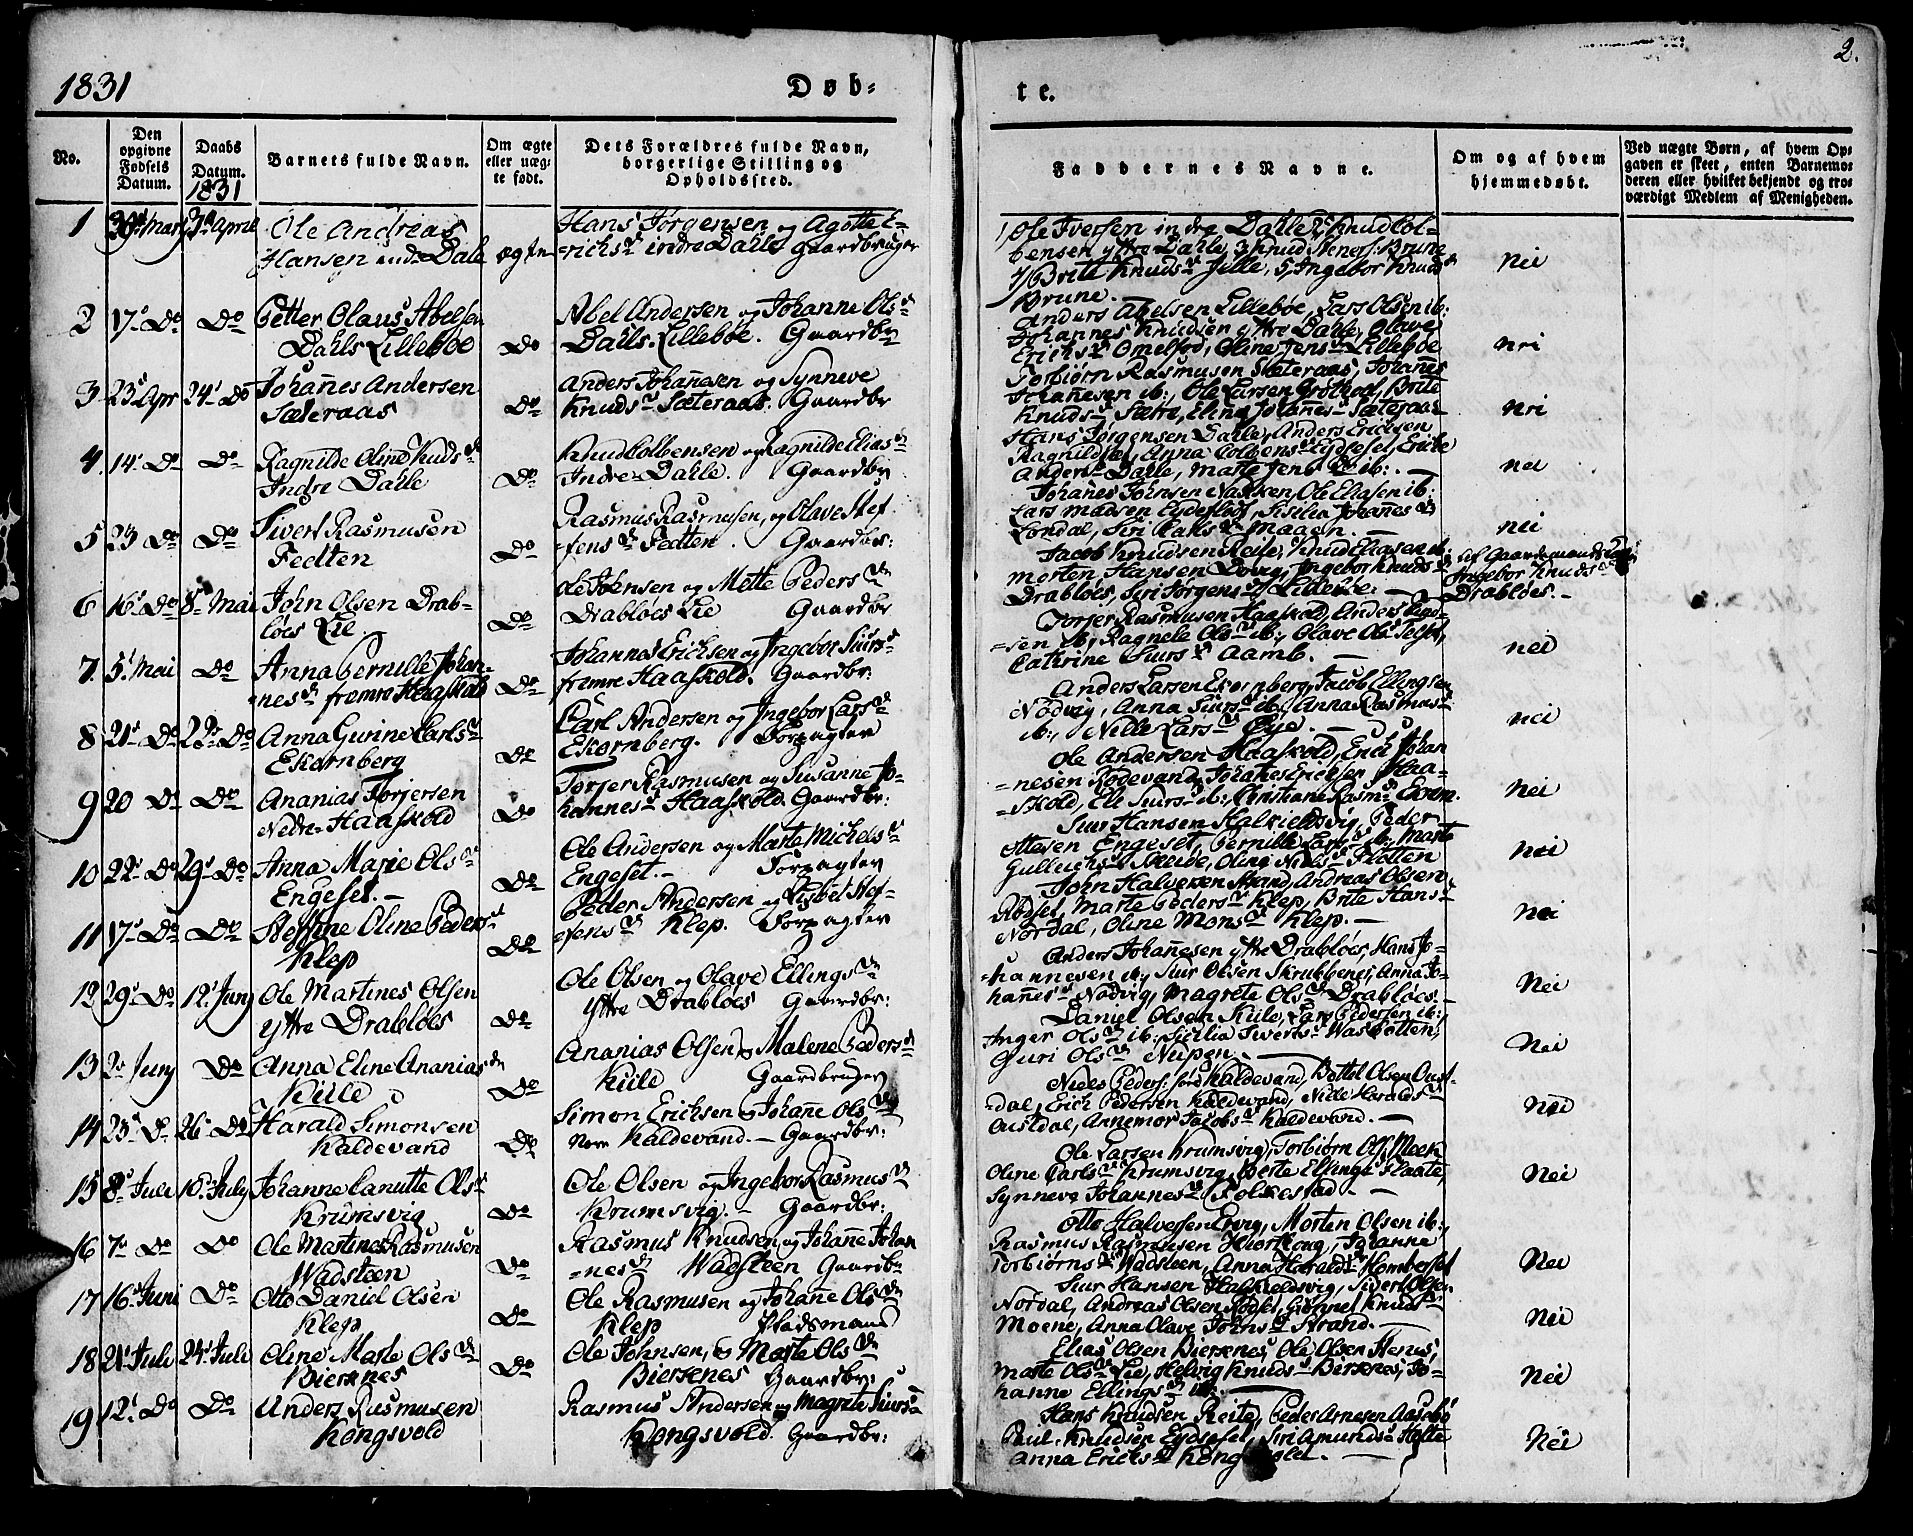 1831
Døb-
te.
2.
No.
Den opgivne Fødsels Datum.
Daabs Datum.
1831
Barnets fulde Navn.
Om ægte eller uæg- te født.
Dets Forældres fulde Navn, borgerlige Stilling og Opholdssted.
Faddernes Navne.
Om og af hvem hjemmedøbt.
Ved uægte Børn, af hvem Op- gaven er skeet, enten Barnemo- deren eller hvilket bekjendt og tro- værdigt Medlem af Menigheden.
1 Ole Andreas
Hansen indre Dale
ægte
Hans Jørgensen og Agotte E-
richsdr indre Dahle Gaardbruger
1/ Ole Iversen indre Dahle, 2, Knud Col-
bensen yttre Dahle, 3 Knud Steners: Brune
4/ Brite Knudsdr Jelle, 5, Ingebor Knudsdr
Brune.
Nei
2 17de Do Do Petter Olaus Abelsen
Dahls Lillebøe
Do
Abel Andersen og Johanne Olsdr
Dahls Lillebøe. Gaardbr
Anders Abelsen Lillebøe, Lars Olsen ib:
Johannes Knudsen yttre Dahle, Olave
Erichsdr Omelfod, Oline Jensdr Lillebøe
Nei
3 23de Apr 24de Do Johannes Andersen
Sæteraas
Do
Anders Johannesen og Synneve
Knudsdr Sæteraas. Gaardbr
Torbiørn Rasmusen Sæteraas, Johannes
Johannesen ib:, Ole Larsen Grøthool, Brite
Knudsdr Sætre, Eline Johannesdr Sæteraas
Nei
4. 14de Do Do Ragnilde Oline Knudsdr
Indre Dahle
Do
Knud Colbensen og Ragnilde Eliasdr
Indre Dahle. Gaardbr
Hans Jørgensen Dahle, Anders Erichsen
Ragnildsæt, Anna Colbensdr Eydseset, Ericke
Andersdr Dahle, Marte Jensdr ib:
Nei
5 23 Do Do Sivert Rasmusen
Fedten
Do
Rasmus Rasmusen, og Olave Stef
fensdr Fedten. Gaardbr:
Johanes Johnsen Nakken, Ole Eliasen ib:
Lars Madsen Eydesloj, Sisilia Johanesdr
Londal, Siri Carlsdr Maagen.
Nei
6 16de Do 8de Mai John Olsen Drab-
løes Lie
Do
Ole Johnsen og Mette Pedersdr
Drabløes Lie Gaardbr
Jacob Knudsen Reite, Knud Eliasen ib:
Morten Hansen Dovig, Ingebor Knudsdr
Drabløes, Siri Jørgensdr Lillebøe.
af Gaardmands
Ingebor Knudsdr
Drabløes.
7. 5te Mai Do Anna Pernille Johan-
nesdr fremre Haaskold
Do
Johannes Erichsen og Ingebor Siursdr
fremre Haaskold. Gaardbr:
Torjer Rasmusen Haaskold, Anders Knud-
sen ib:, Ragnele Olsdr ib:, Olave Olsdr
Cathrine Siursdr Aamb.
Nei
8 21de Do 22de Do Anna Gurine Carlsdr
Ekornberg
Do
Carl Andersen og Ingebor Larsdr
Ekornberg. Forpagter
Anders Larsen Ekornberg, Jacob Ellingsen
Nødvig, Anna Siursdr ib:, Anna Rasmusdr
ib:, Nille Larsdr Øye.
Nei
9 20 Do Do Ananias Torjersen
Nedre Haaskold
Do
Torjer Rasmusen og Susanne Jo-
hannesdr Haaskold. Gaardbr:
Ole Andersen Haaskold, Erich Johan
nesen Rødevand, Johanes Erichsen Haa-
skold, Ele Siursdr ib:, Christiane Rasmdr Ekrem.
Nei
10 22de Do 29de Do Anna Marie Olsdr
Engeset.
Do
Ole Andersen og Marte Michelsdr
Engeset. Forpagter
Siur Hansen Halkieldsvig, Peder
Ottesen Engeset, Pernille Larsdr ib:, Marte
Gulluchsdr Skeide, Oline Nielsdr Flotten
Nei
11 17de Do Do Steffine Oline Pedersdr
Klep
Do
Peder Andersen og Lisbet Stef-
fensdr Klep. Forpagter
John Halvorsen Strand, Andreas Olsen
Rødset, Marte Pedersdr Klep, Brite Hansdr
Nordal, Oline Monsdr Klep.
Nei
12 29de Do 12te Juny Ole Martines Olsen
yttre Drabløes
Do
Ole Olsen og Olave Ellingsdr
yttre Drabløes Gaardbr:
Anders Johannesen yttre Drabløes, Hans Jo-
hannesen ib:, Siur Olsen Skrubbenes, Anna Jo-
hannesdr Nødvig, Magrete Olsdr Drabløes.
Nei
13 2de Juny Do Anna Eline Ananiasdr
Kiile
Do
Ananias Olsen, og Malene Pedersdr
Kiile Gaardbruger
Daniel Olsen Kiile, Lars Pedersen ib:,
Inger Olsdr ib:, Sicilia Sivertsdr Wasbotten,
Guri Olsdr Nupen.
Nei
14 23de D. 26de Do Harald Simonsen
Kaldevand
Do
Simon Erichsen og Johanne Olsdr
Kaldevand. Gaardbr:
Niels Peders: Kaldevand, Bottol Olsen Oust-
dal, Erich Pedersen Kaldevand, Nille Haraldsdr
Oustdal, Annemor Jacobsdr Kaldevand.
Nei
15 8de Juli 10de July Johanne Canutte Olsdr
Krumsvig
Do
Ole Olsen og Ingebor Rasmusdr
Krumsvig. Gaardbr:
Ole Larsen Krumsvig, Torbiørn Ols: Meek
Oline Carlsdr Krumsvig, Berte Ellingsdr Flaate,
Synneve Johannesdr Folkestad.
Nei
16 7de Do Do Ole Martines Rasmusen
Wadsteen
Do
Rasmus Knudsen og Johanne Johan
nesdr Wadsteen Gaardbr
Otto Halvorsen Ervig, Morten Olsen ib:
Rasmus Rasmusen Hiorthoug, Johanne
Torbiørnsdr Wadsteen, Anna Haraldsdr Homberset
Nei
17 16de Juni Do Otto Daniel Olsen
Klep
Do
Ole Rasmusen og Johanne Olsdr
Klep Pladsmand
Siur Hansen Halkieldsvig, Sivert Olsen
Nordal, Andreas Olsen Rødset, Gunnel Knudsdr
Moene, Anna Olave Johnsdr Strand.
Nei
18 21de Juli 24de Juli Oline Marte Olsdr
Biersenes
Do
Ole Johnsen, og Marte Olsdr
Biersenes Gaardbr:
Elias Olsen Biersenes, Ole Olsen Stenes,
Marte Olsdr Lie, Helvig Knudsdr Biersenes, Jo-
hanne Ellingsdr ib:
Nei
19 12te Do Do Anders Rasmusen
Kongsvold
Rasmus Andersen og Magrete Siursdr
Kongsvold. Gaardbr:
Hans Knudsen Reite, Peder Arnesen Aasebø
Paul Knudsen Eydseset, Siri Amundsdr Holte
Anna Erichsdr Kongsvold.
Nei